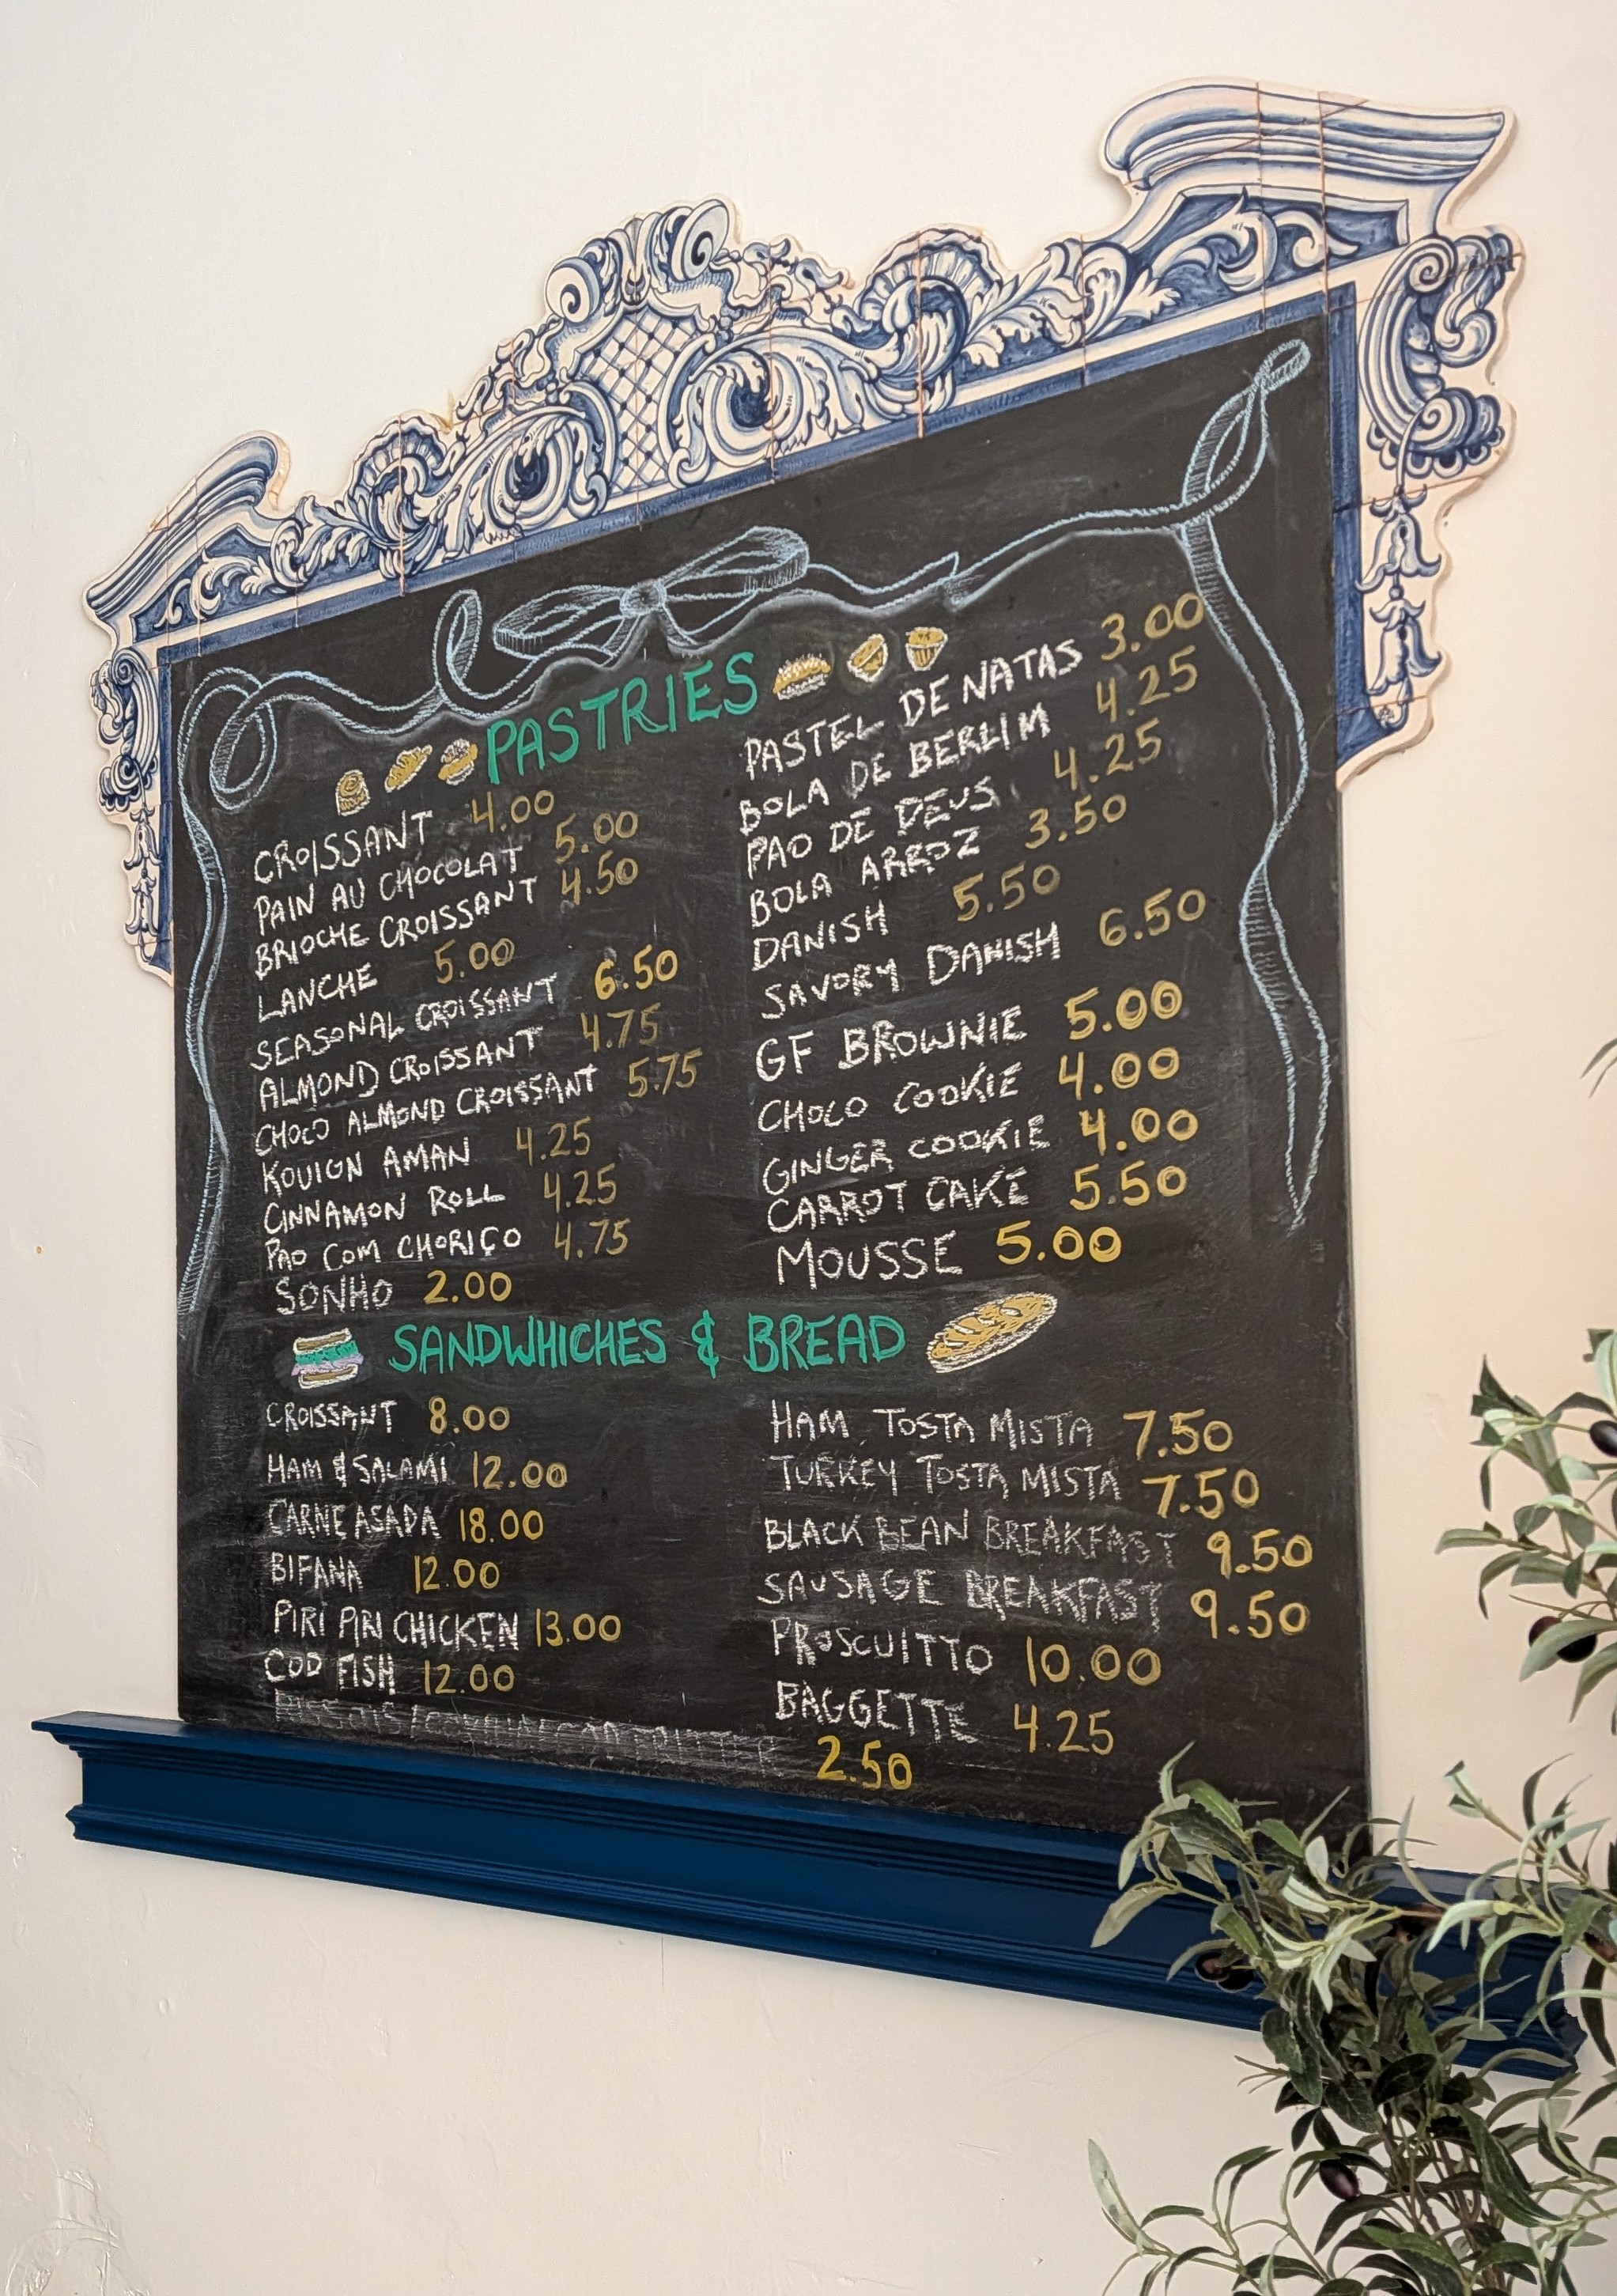 PASTRIES
CROISSANT 4.00
PAIN AU CHOCOLAT 5.00
BRIOCHE CROISSANT 4.50
LANCHE 5.00
SEASONAL CROISSANT 6.50
ALMOND CROISSANT 4.75
CHOCO ALMOND CROISSANT 5.75
KOUIGN AMAN 4.25
CINNAMON ROLL 4.25
PAO COM CHORIÇO 4.75
SONHO 2.00
PASTEL DE NATAS 3.00
BOLA DE BERLIM 4.25
PAO DE DEUS 4.25
BOLA ARROZ 3.50
DANISH 5.50
SAVORY DANISH 6.50
GF BROWNIE 5.00
CHOCO COOKIE 4.00
GINGER COOKIE 4.00
CARROT CAKE 5.50
MOUSSE 5.00
SANDWHICHES & BREAD
CROISSANT 8.00
HAM & SALAMI 12.00
CARNE ASADA 18.00
BIFANA 12.00
PIRI PIRI CHICKEN 13.00
COD FISH 12.00
HAM TOSTA MISTA 7.50
TURKEY TOSTA MISTA 7.50
BLACK BEAN BREAKFAST 9.50
SAUSAGE BREAKFAST 9.50
PROSCUITTO 10.00
BAGGETTE 4.25
2.50